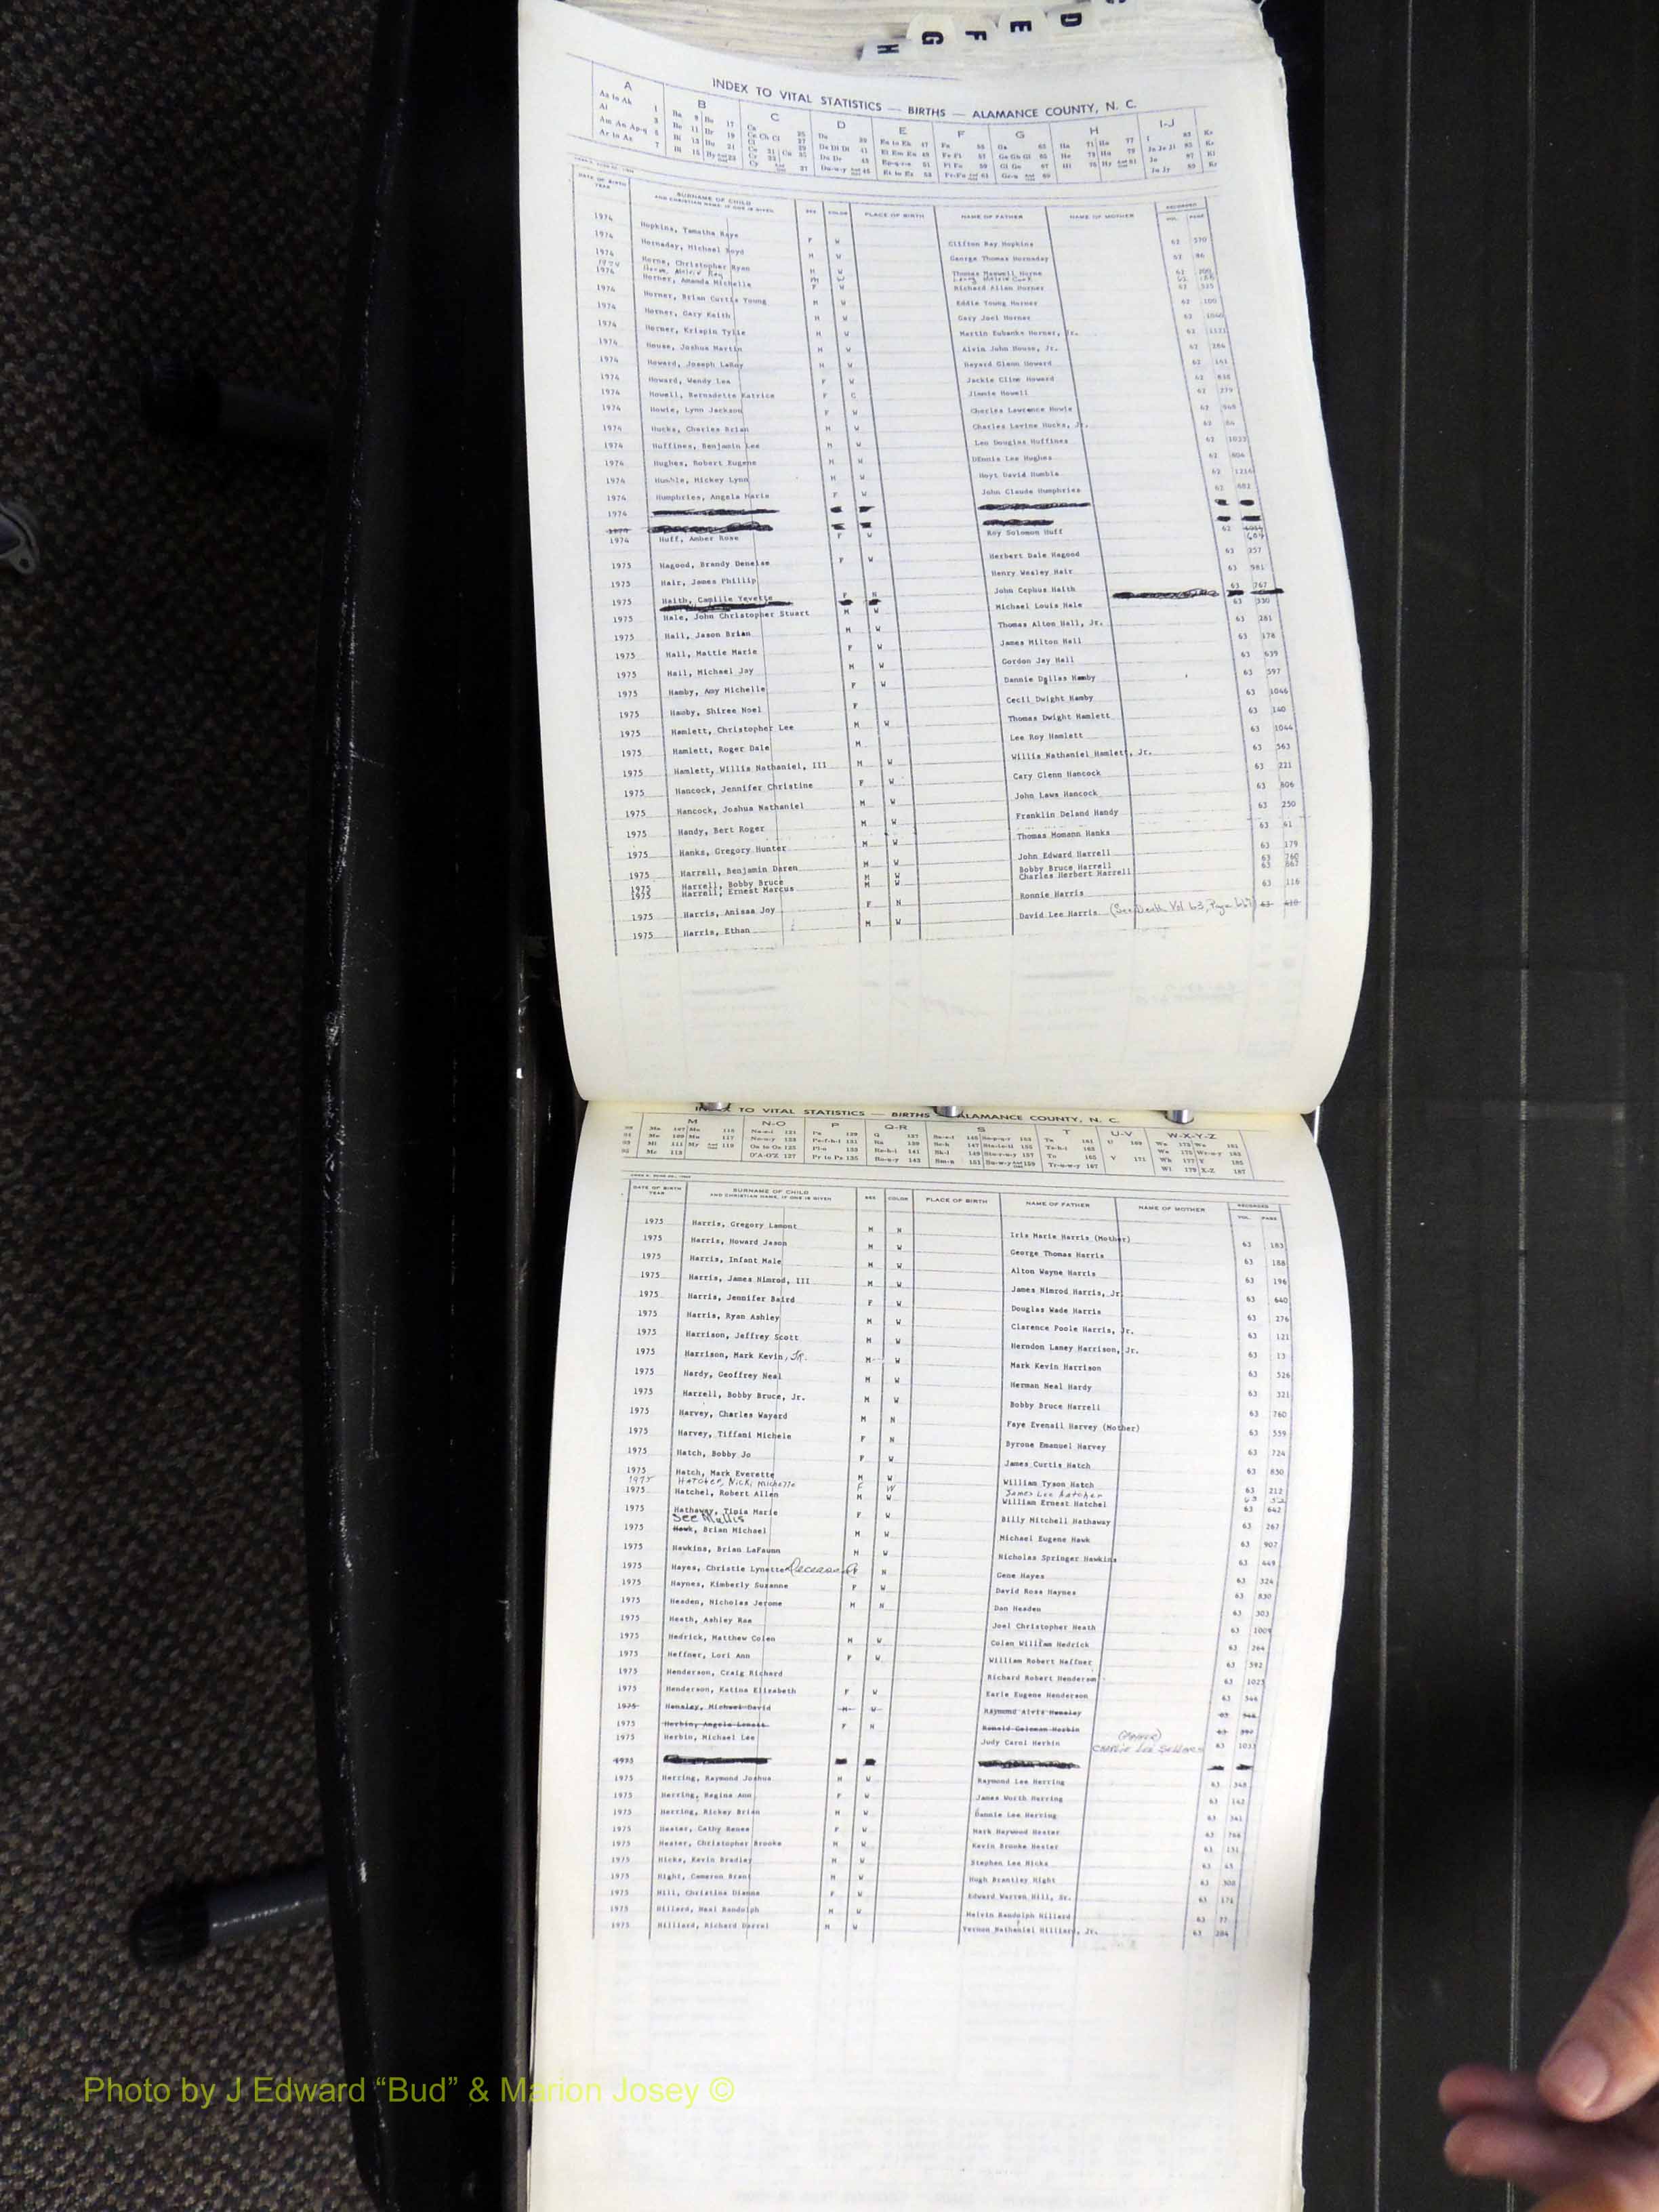 H G F E D
INDEX TO VITAL STATISTICS — BIRTHS — ALAMANCE COUNTY, N. C.
A B C D E F G H I-J
DATE OF BIRTH YEAR SURNAME OF CHILD AND CHRISTIAN NAME, IF ONE IS GIVEN SEX COLOR PLACE OF BIRTH NAME OF FATHER NAME OF MOTHER RECORDED VOL. PAGE
1974 Hopkins, Tamatha Raye F W Clifton Ray Hopkins 62 370
1974 Hornaday, Michael Boyd M W George Thomas Hornaday 62 86
1974 Horne, Christopher Ryan M W Thomas Maxwell Horne 62 200
1974 Horner, Amanda Michelle F W Richard Allen Horner 62 525
1974 Horner, Brian Curtis Young M W Eddie Young Horner 62 100
Horner, Gary Keith M W Gary Joel Horner 62
1974 Horner, Krispin Tylie M W Martin Eubanks Horner, Jr. 62 1121
1974 House, Joshua Martin M W Alvin John House, Jr. 62 264
1974 Howard, Joseph LeRoy M W Hayard Glenn Howard 62 141
1974 Howard, Wendy Lea F W Jackie Cline Howard 62
1974 Howell, Bernadette Katrice F C Jimmie Howell 62 279
1974 Howie, Lynn Jackson F W Charles Lawrence Howie 62
1974 Hucks, Charles Brian M W Charles Levine Hucks, Jr. 62
1974 Huffines, Benjamin Lee M W Len Douglas Huffines 62 1023
1974 Hughes, Robert Eugene M W DEnnis Lee Hughes 62 604
1974 Humble, Mickey Lynn M W Hoyt David Humble 62 1214
1974 Humphries, Angela Marie F W John Claude Humphries 62 682
1974
1974 Huff, Amber Rose F W Roy Solomon Huff 62 609
1975 Hagood, Brandy Deneise F W Herbert Dale Hagood 63 257
1975 Hair, James Phillip Henry Wesley Hair 63 981
1975 Haith, Camille Yevette F N John Cephus Haith 63 767
1975 Hale, John Christopher Stuart M W Michael Louis Hale 63 330
1975 Hall, Jason Brian M W Thomas Alton Hall, Jr. 63 281
1975 Hall, Mattie Marie F W James Milton Hall 63 178
1975 Hall, Michael Jay M W Gordon Jay Hall 63 639
1975 Hamby, Amy Michelle F W Dannie Dallas Hamby 63 597
1975 Hamby, Shiree Noel F Cecil Dwight Hamby 63 1046
1975 Hamlett, Christopher Lee M W Thomas Dwight Hamlett 63 140
1975 Hamlett, Roger Dale M Lee Roy Hamlett 63 1044
1975 Hamlett, Willis Nathaniel, III M W Willis Nathaniel Hamlett, Jr. 63 563
1975 Hancock, Jennifer Christine F W Cary Glenn Hancock 63 221
1975 Hancock, Joshua Nathaniel M W John Laws Hancock 63 606
1975 Handy, Bert Roger M W Franklin Deland Handy 63 250
1975 Hanks, Gregory Hunter M W Thomas Momann Hanks 63 41
1975 Harrell, Benjamin Daren M W John Edward Harrell 63 179
1975 Harrell, Bobby Bruce M W Bobby Bruce Harrell 63 760
1975 Harrell, Ernest Marcus M W Charles Herbert Harrell 63 667
1975 Harris, Anissa Joy F N Ronnie Harris 63 116
1975 Harris, Ethan M W David Lee Harris (See Death Vol 63, Page 667) 63 610
INDEX TO VITAL STATISTICS — BIRTHS — ALAMANCE COUNTY, N. C.
M N-O P Q-R S T U-V W-X-Y-Z
DATE OF BIRTH YEAR SURNAME OF CHILD AND CHRISTIAN NAME, IF ONE IS GIVEN SEX COLOR PLACE OF BIRTH NAME OF FATHER NAME OF MOTHER RECORDED VOL. PAGE
1975 Harris, Gregory Lamont M N Iris Marie Harris (Mother) 63 183
1975 Harris, Howard Jason M W George Thomas Harris 63 188
1975 Harris, Infant Male M W Alton Wayne Harris 63 196
1975 Harris, James Nimrod, III M W James Nimrod Harris, Jr 63 640
1975 Harris, Jennifer Baird F W Douglas Wade Harris 63 276
1975 Harris, Ryan Ashley M W Clarence Poole Harris, Jr. 63 121
1975 Harrison, Jeffrey Scott M W Herndon Laney Harrison, Jr. 63 13
1975 Harrison, Mark Kevin, Jr. M W Mark Kevin Harrison 63 526
1975 Hardy, Geoffrey Neal M W Herman Neal Hardy 63 321
1975 Harrell, Bobby Bruce, Jr. M W Bobby Bruce Harrell 63 760
1975 Harvey, Charles Wayard M N Faye Evenail Harvey (Mother) 63 559
1975 Harvey, Tiffani Michele F N Dyrone Emanuel Harvey 63 724
1975 Hatch, Bobby Jo F W James Curtis Hatch 63 850
1975 Hatch, Mark Everette M W William Tyson Hatch 63 212
1975 Hatcher, Nicki Michelle F W James Lee Hatcher 63
1975 Hatchel, Robert Allen M W William Ernest Hatchel 63 642
1975 Hathaway, Tinia Marie F W Billy Mitchell Hathaway 63 267
See Mullis
1975 Hawk, Brian Michael M W Michael Eugene Hawk 63 907
1975 Hawkins, Brian LaFaunn M W Nicholas Springer Hawkins 63 449
1975 Hayes, Christie Lynette Deceased F N Gene Hayes 63 324
1975 Haynes, Kimberly Suzanne F W David Ross Haynes 63 830
1975 Headen, Nicholas Jerome M N Don Headen 63 303
1975 Heath, Ashley Rae Joel Christopher Heath 63 1009
1975 Hedrick, Matthew Colen M W Colen William Hedrick 63 264
1975 Heffner, Lori Ann F W William Robert Heffner 63 592
1975 Henderson, Craig Richard Richard Robert Henderson 63 1025
1975 Henderson, Katina Elizabeth F W Earle Eugene Henderson 63 546
1975 Hensley, Michael David M W Raymond Alvis Hensley 63
1975 Herbin, Angela F N Ronald Coleman Herbin 63
1975 Herbin, Michael Lee Judy Carol Herbin (Father) Charlie Lee Sellars 63 1033
1975
1975 Herring, Raymond Joshua M W Raymond Lee Herring 63 548
1975 Herring, Regina Ann F W James Worth Herring 63 142
1975 Herring, Rickey Brian M W Dannie Lee Herring 63 341
1975 Hester, Cathy Renee F W Mark Haywood Hester 63 766
1975 Hester, Christopher Brooks M W Kevin Brooks Hester 63 151
1975 Hicks, Kevin Bradley M W Stephen Lee Hicks 63 45
1975 Hight, Cameron Brant M W Hugh Brantley Hight 63 308
1975 Hill, Christina Dianne F W Edward Warren Hill, Sr. 63 174
1975 Hillard, Neal Randolph M W Melvin Randolph Hillard 63 77
1975 Hilliard, Richard Darrel M W Vernon Nathaniel Hilliard, Jr. 63 284
Photo by J Edward “Bud” & Marion Josey ©